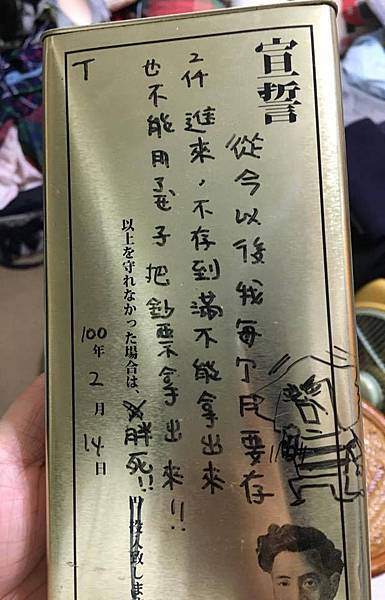 宣誓
從今以後我每个月要存
2仟進來，不存到滿不能拿出來
也不能用子把鈔票拿出來!!
以上を守れなかった場合は、胖死!!投入致しま
100年2月14日
T